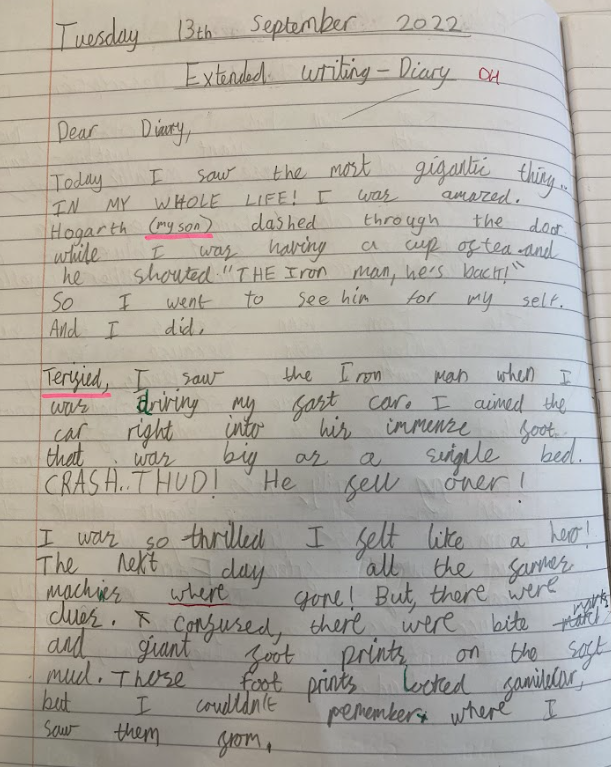 Tuesday 13th September 2022
Extended writing - Diary OH
Dear Diary,
Today I saw the most gigantic thing..
IN MY WHOLE LIFE! I was amazed.
Hogarth (my son) dashed through the door
while I was having a cup of tea and
he shouted "THE Iron man, he's back!"
So I went to see him for my self.
And I did.
Terified, I saw the Iron man when I
was driving my fast car. I aimed the
car right into his immense foot
that was big as a single bed.
CRASH..THUD! He fell over!
I was so thrilled I felt like a hero!
The next day all the farmer
machies where gone! But, there were
clues. Confused, there were bite marks
and giant foot prints on the soft
mud. These foot prints looked familear,
but I couldn't remember where I
saw them from.